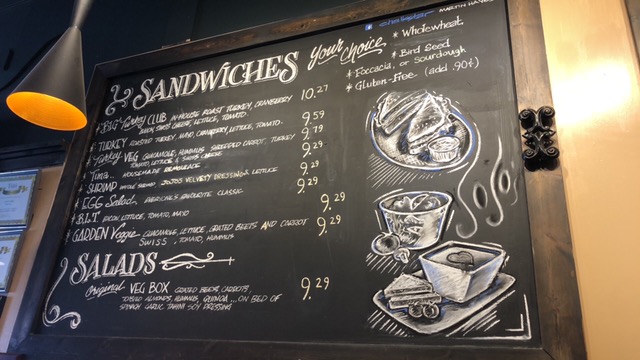 SANDWICHES
Your Choice
* Wholewheat
* Bird Seed
* Foccacia, or Sourdough
* Gluten-Free (add .90¢)
* BIG Turkey CLUB IN-HOUSE ROAST TURKEY, CRANBERRY 10.27
BACON, SWISS CHEESE, LETTUCE, TOMATO
* TURKEY ROASTED TURKEY, MAYO, CRANBERRY, LETTUCE, TOMATO. 9.59
* Turkey VEG GUACAMOLE, HUMMUS SHREDDED CARROT, TURKEY 9.79
TOMATO, LETTUCE & SWISS CHEESE
* Tuna HOUSEMADE REMOULADE 9.29
* SHRIMP JOJO'S VELVETY DRESSING & LETTUCE 9.29
* EGG Salad EVERYONE'S FAVOURITE CLASSIC 9.29
* B.L.T BACON, LETTUCE, TOMATO, MAYO 9.29
* GARDEN Veggie GUACAMOLE, LETTUCE, GRATED BEETS AND CARROT 9.29
SWISS, TOMATO, HUMMUS
SALADS
Original VEG BOX GRATED BEETS, CARROTS, 9.29
TOASTED ALMONDS, HUMMUS, QUINOA ... ON BED OF
SPINACH GARLIC TAHINI SOY DRESSING
JoJo's